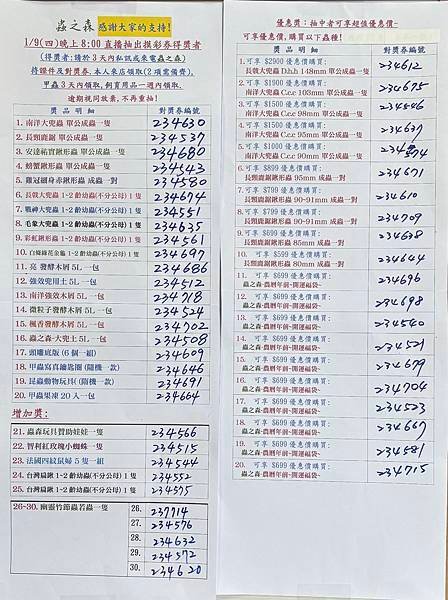 蟲之森 感謝大家的支持!
1/9(四)晚上8:00 直播抽出摸彩券得獎者
(得獎者:請於3天內私訊或來電蟲之森)
待課件及對獎券.本人來店領取(2項需備齊).
甲蟲3天內領取,飼育用品一週內領取.
逾期視同放棄,不再重抽!
獎品明細 對獎券編號
1. 南洋大兜蟲 單公成蟲一隻 234630
2. 長頸鹿鋸 單公成蟲一隻 234537
3. 安達祐實鍬形蟲 單公成蟲一隻 234680
4. 螃蟹鍬形蟲 單公成蟲一隻 234543
5. 雞冠細身赤鍬形蟲 成蟲一對 234580
6. 長戟大兜蟲 1~2齡幼蟲(不分公母) 1隻 234674
7. 戰神大兜蟲 1~2齡幼蟲(不分公母) 1隻 234551
8. 毛象大兜蟲 1~2齡幼蟲(不分公母) 1隻 234635
9. 彩虹鍬形蟲 1~2齡幼蟲(不分公母) 1隻 234561
10. 白條綠花金龜 1~2齡幼蟲(不分公母) 1隻 234697
11. 亮 發酵木屑 5L 一包 234686
12. 強效兜用土 5L 一包 234512
13. 南洋強效木屑 5L 一包 234718
14. 微粒子發酵木屑 5L 一包 234524
15. 楓香發酵木屑 5L 一包 234702
16. 蟲之森-大兜土 5L 一包 234508
17. 頭雕紙版(6個一組) 234609
18. 甲蟲寫真鑰匙圈(隨機一款) 234646
19. 昆蟲動物玩具(隨機一款) 234691
20. 甲蟲果凍 20入一包 234664
增加獎:
21. 蟲森玩具贊助娃娃一隻 234566
22. 智利紅玫瑰小蜘蛛一隻 234515
23. 法國四紋鼠婦 5隻一組 234544
24. 台灣扁鍬 1~2齡幼蟲(不分公母) 1隻 234552
25. 台灣扁鍬 1~2齡幼蟲(不分公母) 1隻 234575
26-30. 幽靈竹節蟲若蟲一隻 26. 237714
27. 234576
28. 234632
29. 234572
30. 234620
優惠獎:抽中者可享超值優惠價~
可享優惠價,購買以下蟲種!
獎品明細 對獎券編號
1.可享 $2900 優惠價購買:
長戟大兜蟲 D.h.h 148mm 單公成蟲一隻 234612
2.可享 $1900 優惠價購買:
南洋大兜蟲 C.c.c 103mm 單公成蟲一隻 234675
3.可享 $1500 優惠價購買:
南洋大兜蟲 C.c.c 98mm 單公成蟲一隻 234546
4.可享 $1500 優惠價購買:
南洋大兜蟲 C.c.c 95mm 單公成蟲一隻 234637
5.可享 $1000 優惠價購買:
南洋大兜蟲 C.c.c 90mm 單公成蟲一隻 234574
6.可享 $899 優惠價購買:
長頸鹿鋸鍬形蟲 95mm 成蟲一對 234671
7.可享 $799 優惠價購買:
長頸鹿鋸鍬形蟲 90-91mm 成蟲一對 234610
8.可享 $799 優惠價購買:
長頸鹿鋸鍬形蟲 90-91mm 成蟲一對 234709
9.可享 $699 優惠價購買:
長頸鹿鋸鍬形蟲 85mm 成蟲一對 234638
10. 可享 $599 優惠價購買:
長頸鹿鋸鍬形蟲 80mm 成蟲一對 234644
11. 可享 $699 優惠價購買:
蟲之森-農曆年前~開運福袋~ 234696
12. 可享 $699 優惠價購買:
蟲之森-農曆年前~開運福袋~ 234698
13. 可享 $699 優惠價購買:
蟲之森-農曆年前~開運福袋~ 234540
14. 可享 $699 優惠價購買:
蟲之森-農曆年前~開運福袋~ 234521
15. 可享 $699 優惠價購買:
蟲之森-農曆年前~開運福袋~ 234679
16. 可享 $699 優惠價購買:
蟲之森-農曆年前~開運福袋~ 234704
17. 可享 $699 優惠價購買:
蟲之森-農曆年前~開運福袋~ 234523
18. 可享 $699 優惠價購買:
蟲之森-農曆年前~開運福袋~ 234667
19. 可享 $699 優惠價購買:
蟲之森-農曆年前~開運福袋~ 234581
20. 可享 $699 優惠價購買:
蟲之森-農曆年前~開運福袋~ 234715